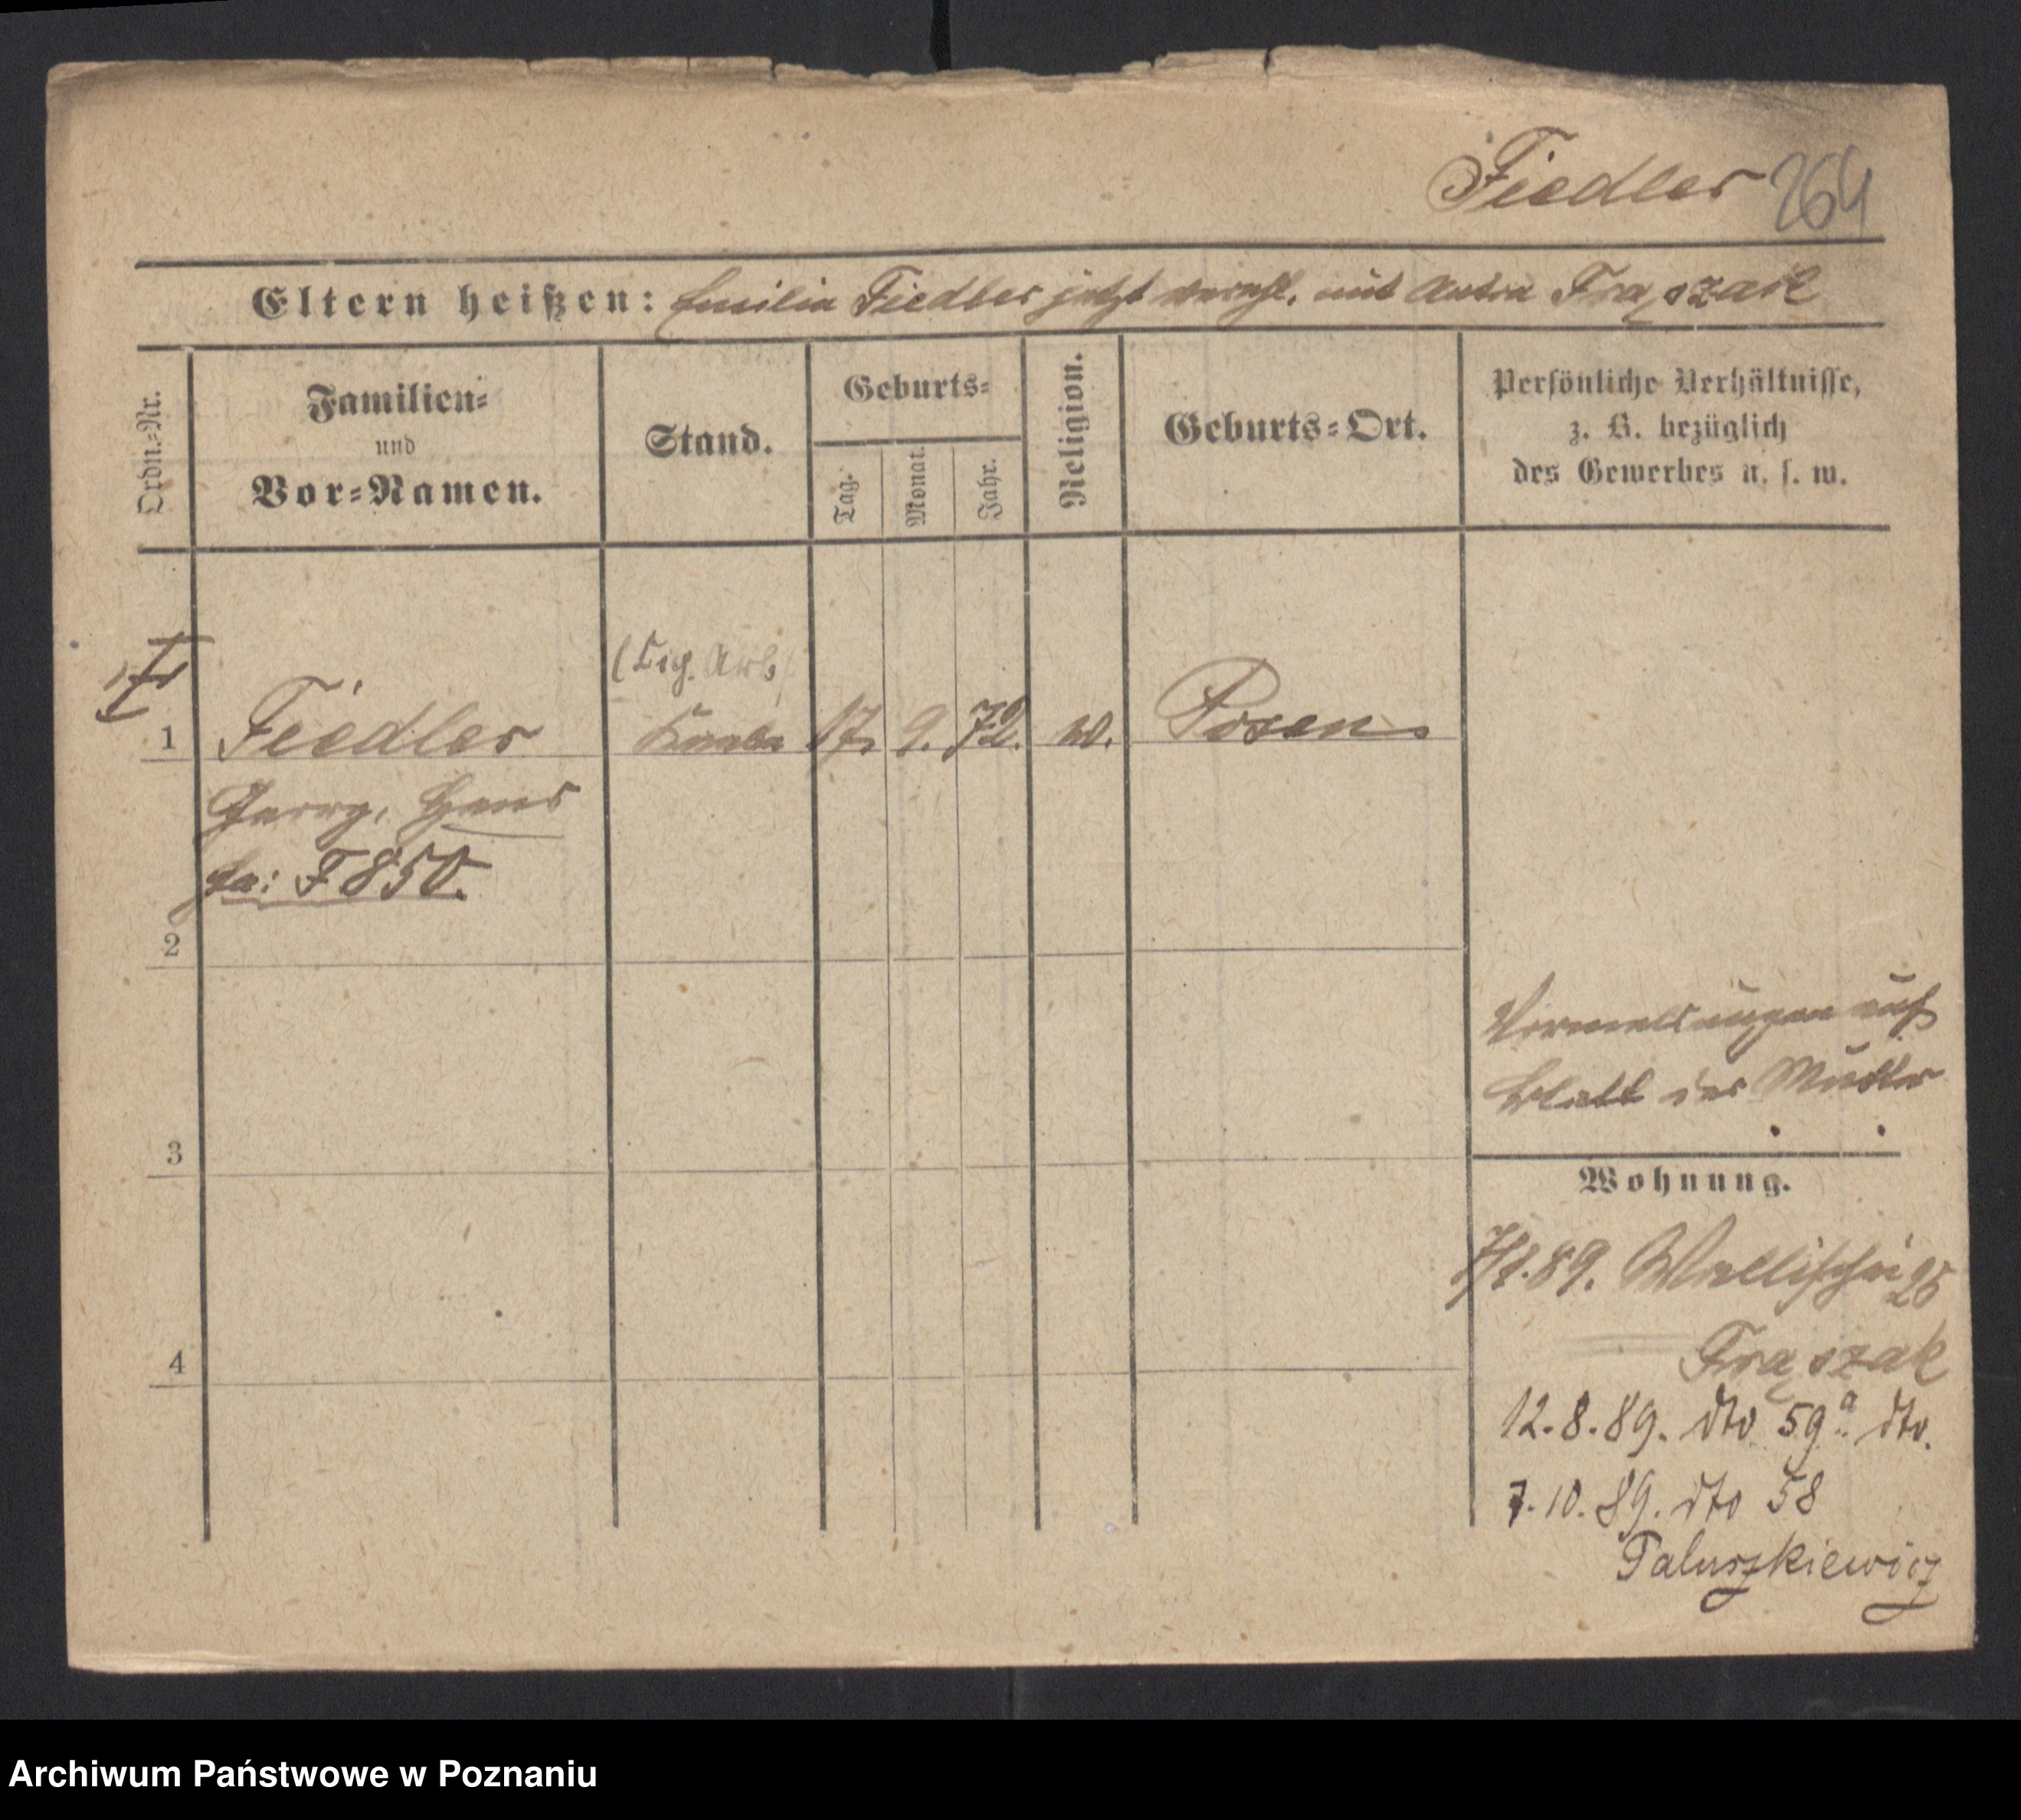 Fiedler 264
Eltern heißen: Emilia Fiedler jetzt vereh. mit Fraszak
Ordn.-Nr.
Familien-
und
Vor-Namen.
Stand.
Geburts-
Tag.
Monat.
Jahr.
Religion.
Geburts-Ort.
Persönliche Verhältnisse,
z. B. bezüglich
des Gewerbes u. s. w.
(Cig. Arb.
1 Fiedler Knabe 17. 9. 72. Posen
Georg, Hans
F 850.
2
Vormeldungen auf
Blatt der Mutter
3
Wohnung.
89. Wallischei 26
4
Frąszak
12.8.89. dto 59a dto.
7.10.89. dto 58
Paluszkiewicz
Archiwum Państwowe w Poznaniu